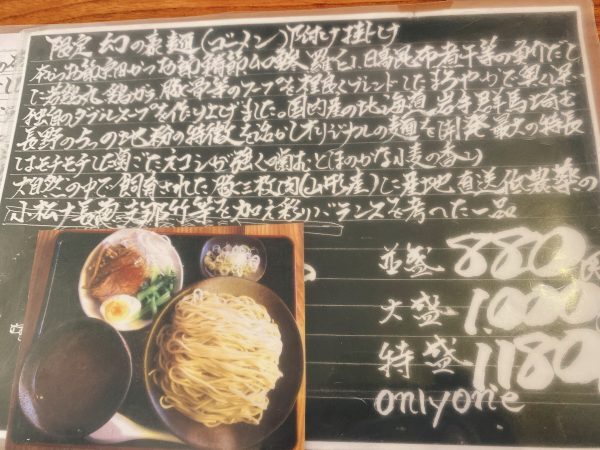 限定 幻の豪麺(ゴーメン)付け掛け
本からお節宗田かつお節鯖節 と 日高昆布煮干等の だし
に若鶏丸鶏ガラ豚骨等のスープを程良くブレンドしたまろやかで奥
独自のダブルスープを作り上げました。国内産の地 北海道 岩手 群馬 埼玉
長野の5つの地粉の特徴を活かしオリジナルの麺を開発 最大の特長
はモチモチした歯ごたえコシが強く噛むとほのかな小麦の香り
大自然の中で飼育された豚三枚肉(山形産)に産地直送低農薬の
小松菜 長葱 支那竹等を加え彩りバランスを考へた一品
並盛 880円
大盛 1,000
特盛 1180
onlyone